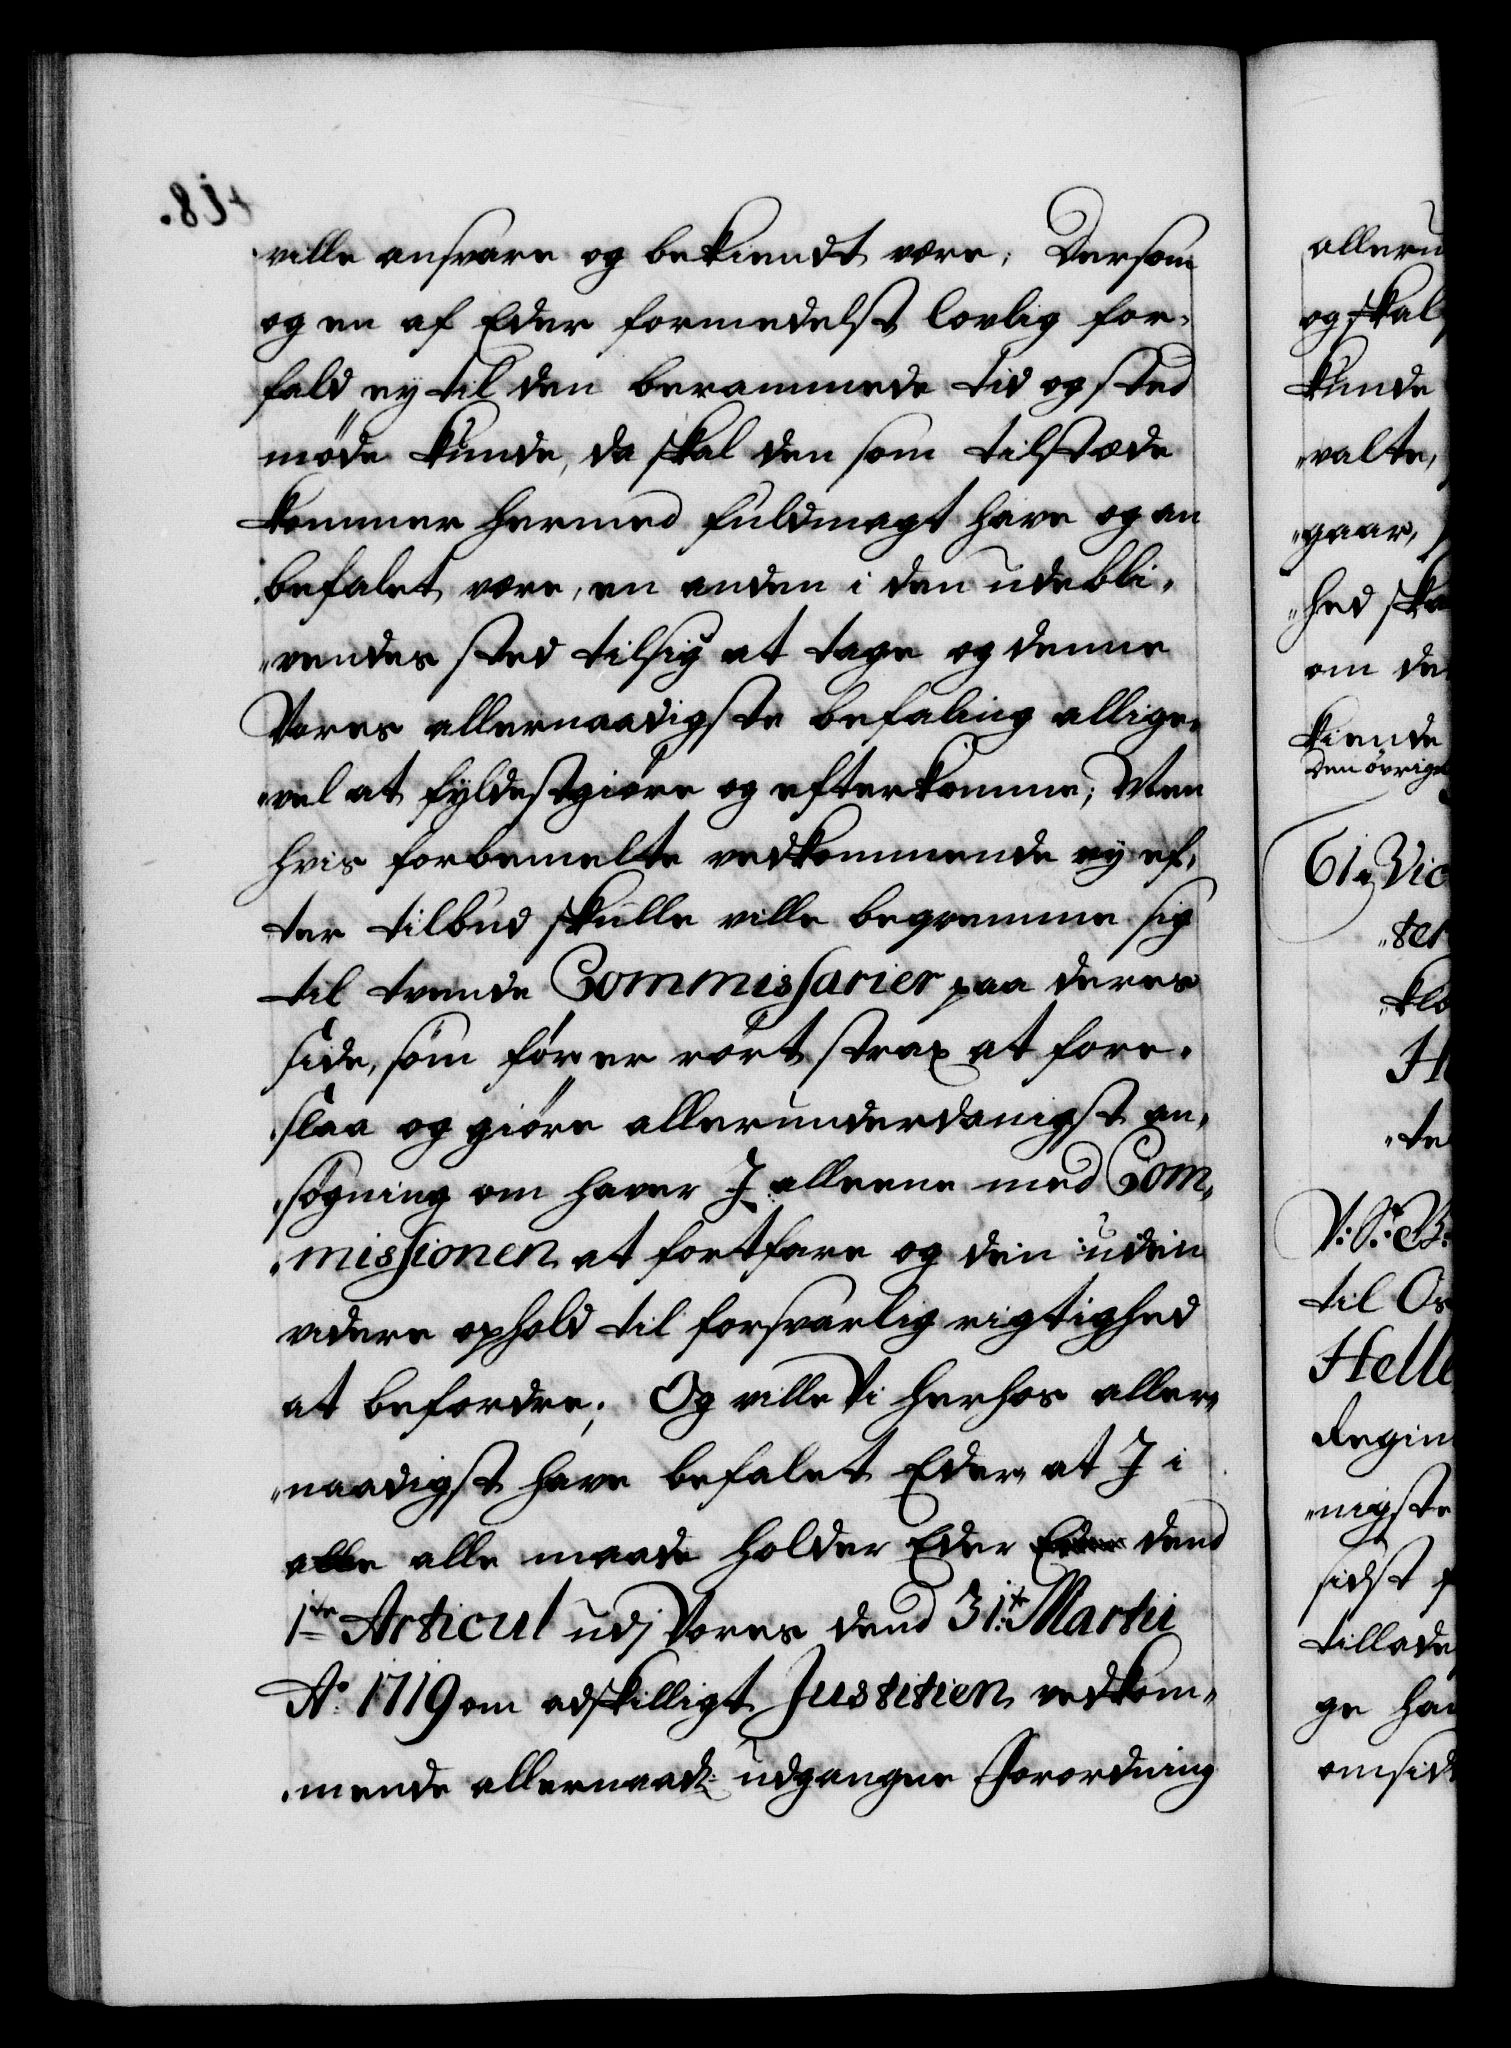 ville ansvare og bekiendt være, Dersom
og en af Eder formedelst lovlig for-
fald ey til den berammede tid og sted
møde kunde, da skal den som tilstæde
kommer hermed fuldmagt have og an
befalet være, en anden i den udebli-
vendes sted tilsig at tage og denne
Vores allernaadigste befaling allige-
vel at fyldestgiøre og efterkomme; Men
hvis forbemelte vedkommende ey ef-
ter tilbud skulle ville beqvemme sig
til tvende Commissarier paa deres
side, som før er rørt strax at fore-
slaa og giøre allerunderdanigst an-
søgning om haver I alleene med Com-
missionen at fortfare og den uden
videre ophold til forsvarlig rigtighed
at befordre; Og ville Vi herhos aller-
naadigst have befalet Eder, at I i
alle alle maade holder Eder dend
1te Articul udj Vores dend 31te Martii
Ao 1719 om adskilligt Justitien vedkom-
mende allernaad: udgangne Forordning
alleru
og skal
kunde
valte,
gaar,
hed ska
om de
kiende
den øvrige
61. Vic
ter
klo
H
te
V: S: B:
til Os
Helle
Regim
nigste
sidst
tillade
ge ha
omsid